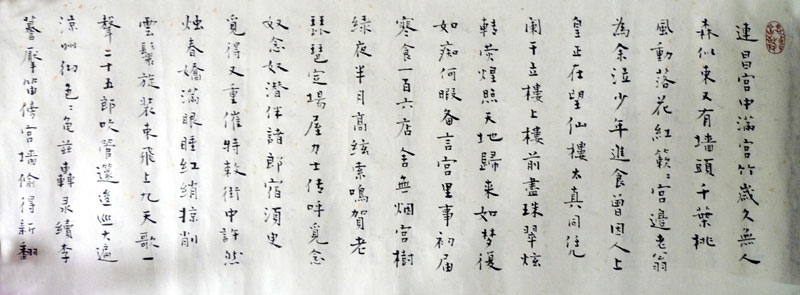 連昌宮中滿宮竹歲久無人
森似束又有墻頭千葉桃
風動落花紅簌〻宮邊老翁
為余泣少年進食曾因入上
皇正在望仙樓太真同凭
闌干立樓上樓前盡珠翠炫
轉熒煌照天地歸来如梦復
如痴何暇备言宮里事初届
寒食一百六店舍無烟宮樹
緑夜半月高絃索鳴賀老
琵琶定場屋力士传呼覓念
奴念奴潛伴諸郎宿須臾
覓得又重催特敕街中許然
烛春嬌滿眼睡紅綃掠削
雲鬢旋装束飛上九天歌一
聲二十五郎吹管篴逡巡大遍
涼州徹色〻龜茲轟录續李
謩擪笛傍宮墻偷得新翻